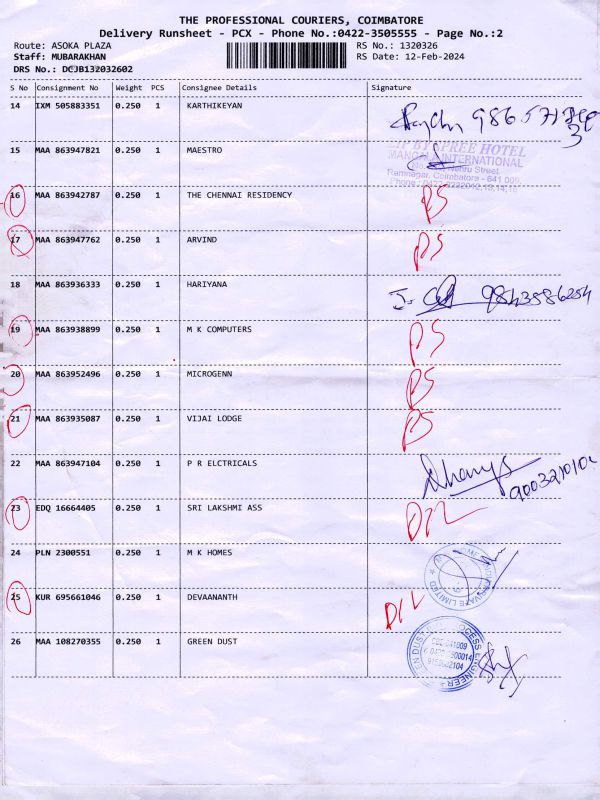 THE PROFESSIONAL COURIERS, COIMBATORE
Delivery Runsheet - PCX - Phone No.:0422-3505555 - Page No.:2
Route: ASOKA PLAZA RS No.: 1320326
Staff: MUBARAKHAN RS Date: 12-Feb-2024
DRS No.: DCJB132032602
S No Consignment No Weight PCS Consignee Details Signature
14 IXM 505883351 0.250 1 KARTHIKEYAN
15 MAA 863947821 0.250 1 MAESTRO
HOTEL
INTERNATIONAL
Nehru Street
Ramnagar, Coimbatore - 641 009.
16 MAA 863942787 0.250 1 THE CHENNAI RESIDENCY PS
17 MAA 863947762 0.250 1 ARVIND PS
18 MAA 863936333 0.250 1 HARIYANA 9843586254
19 MAA 863938899 0.250 1 M K COMPUTERS PS
20 MAA 863952496 0.250 1 MICROGENN PS
21 MAA 863935087 0.250 1 VIJAI LODGE PS
22 MAA 863947104 0.250 1 P R ELCTRICALS
23 EDQ 16664405 0.250 1 SRI LAKSHMI ASS D/L
24 PLN 2300551 0.250 1 M K HOMES
PRIVATE LIMITED
25 KUR 695661046 0.250 1 DEVAANANTH D/L
26 MAA 108270355 0.250 1 GREEN DUST